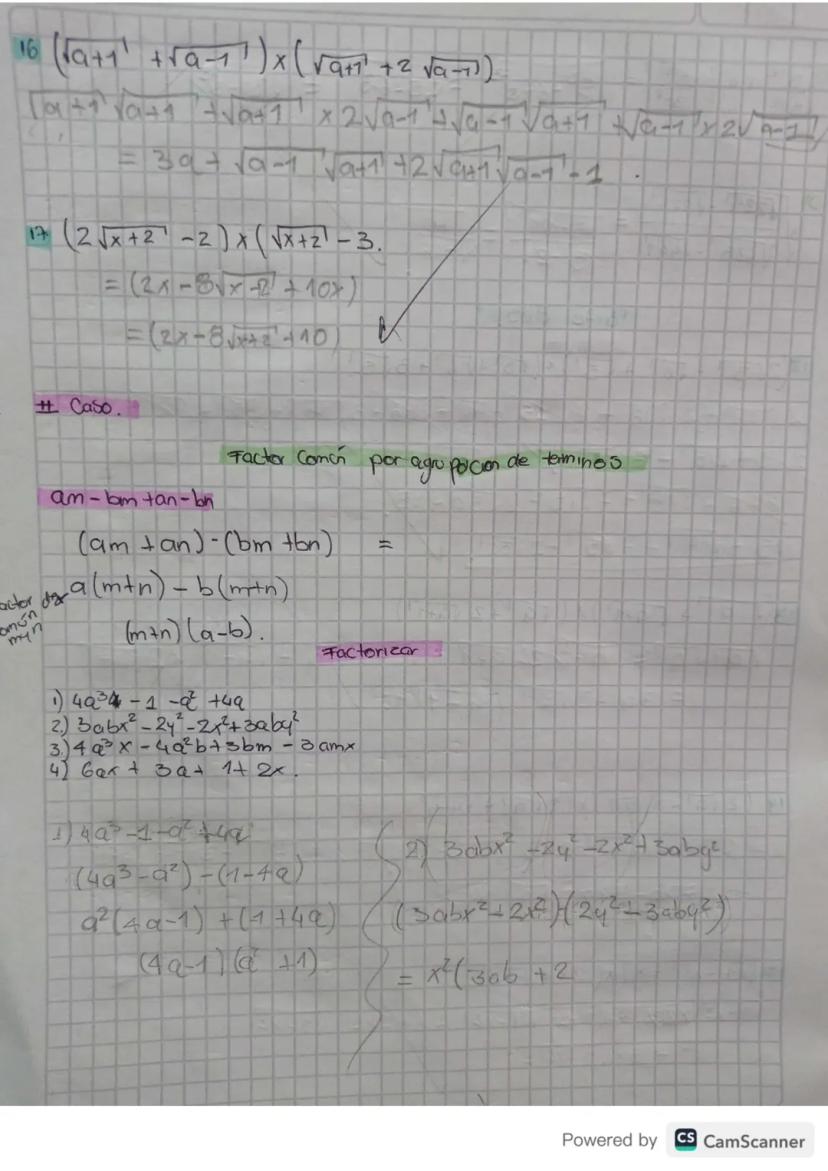 16 (√a+1 + √a-1) x (√a+1 + 2 √a-1)
√a+1 √a+1 + √a+1 x 2√a-1 + √a-1 √a+1 + √a-1 x 2√a-1
= 3a + √a-1 √a+1 + 2√a+1 √a-1 - 1.
17 (2√x+2 - 2) x (√x+2 - 3.
= (2x - 8√x-2 + 10x)
= (2x - 8√x+2 + 10)
# Caso.
Factor Común por agrupacion de terminos
am - bm + an - bn
(am + an) - (bm + bn) =
a(m+n) - b(m+n)
(m+n) (a-b).
Factorizar
1) 4a³ - 1 - a² + 4a
2) 3abx² - 2y² - 2x² + 3aby²
3) 4a³x - 4a²b + 3bm - 3amx
4) 6ax + 3a + 1 + 2x.
1) 4a³ - 1 - a² + 4a
(4a³ - a²) - (1 - 4a)
a²(4a-1) + (1+4a)
(4a-1) (a² + 1)
2) 3abx² - 2y² - 2x² + 3aby²
(3abx² - 2x²) - (2y² - 3aby²)
= x²(3ab + 2
Powered by CS CamScanner